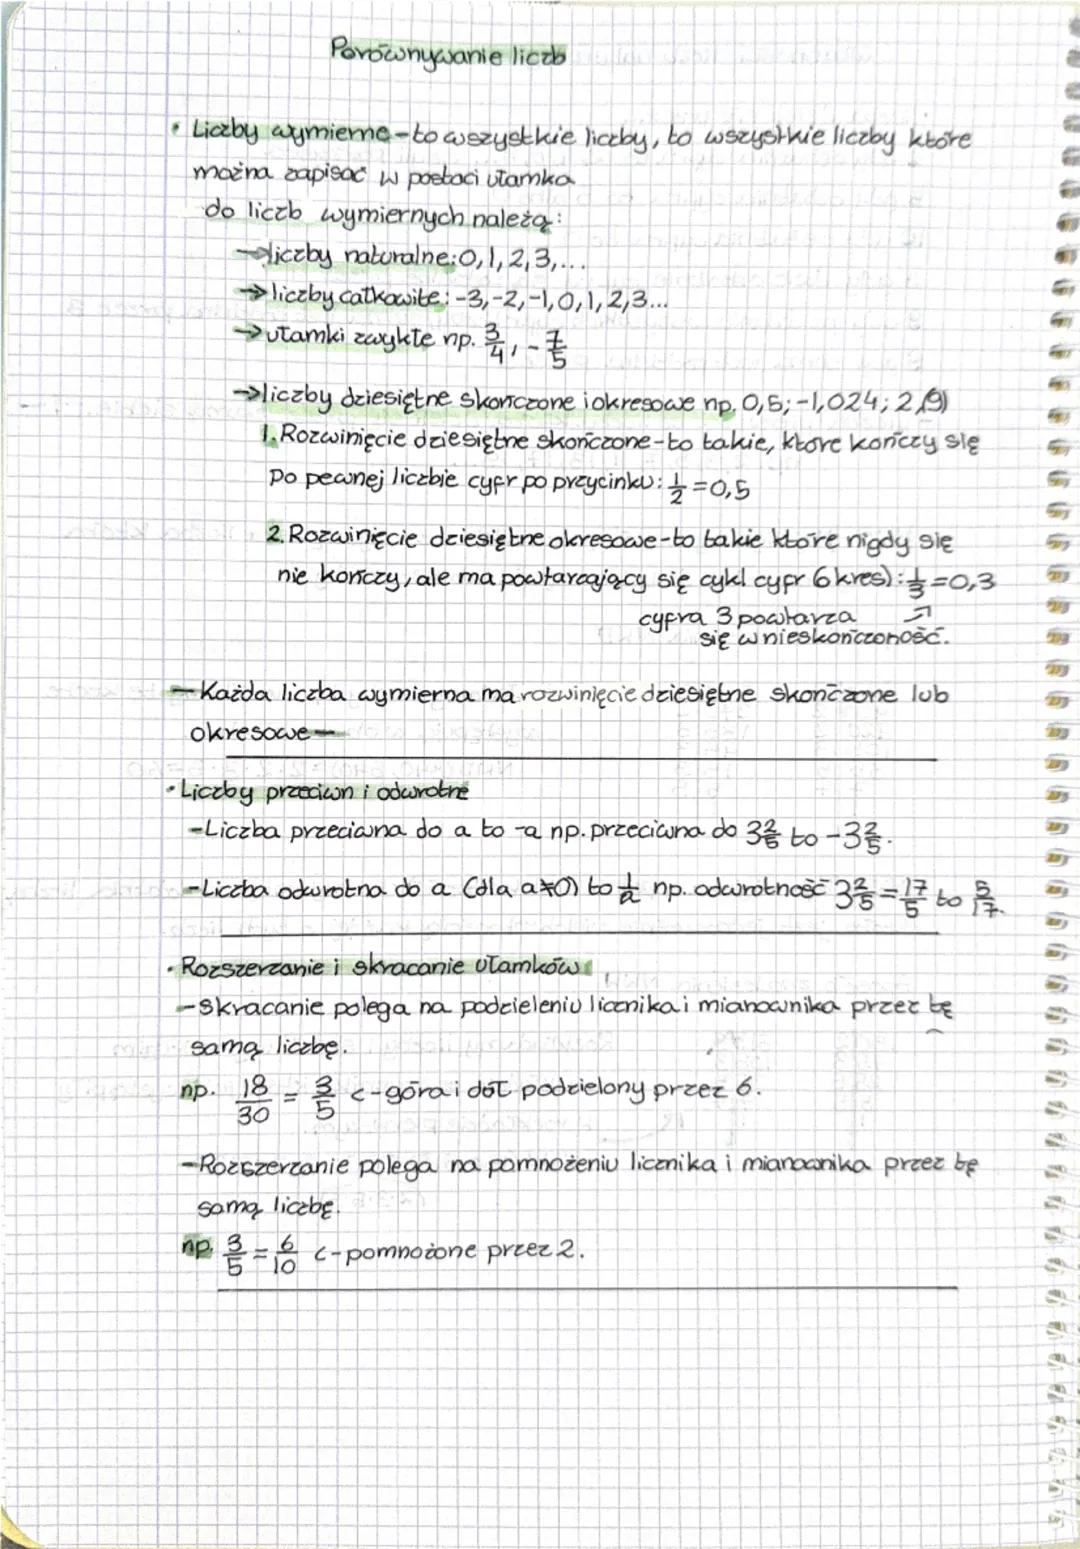 Porównywanie liczb
• Liczby wymierne - to wszystkie liczby, to wszystkie liczby które
można zapisać w postaci ułamka
do liczb wymiernych należą:
→ liczby naturalne: 0, 1, 2, 3,...
→ liczby całkowite: -3, -2, -1, 0, 1, 2, 3...
→ ułamki zwykłe np. 3/4, - 7/5
→ liczby dziesiętne skończone i okresowe np. 0,5; -1,024; 2,(9)
1. Rozwinięcie dziesiętne skończone - to takie, które kończy się
po pewnej liczbie cyfr po przycinku: 1/2 = 0,5
2. Rozwinięcie dziesiętne okresowe - to takie które nigdy się
nie kończy, ale ma powtarzający się cykl cyfr (okres): 1/3 = 0,3
cyfra 3 powtarza
się w nieskończoność.
- Każda liczba wymierna ma rozwinięcie dziesiętne skończone lub
okresowe -
• Liczby przeciwn i odwrotne
- Liczba przeciwna do a to -a np. przeciwna do 3 2/5 to -3 2/5.
- Liczba odwrotna do a (dla a≠0) to 1/a np. odwrotność 3 2/5 = 17/5 to 5/17.
• Rozszerzanie i skracanie ułamków
- skracanie polega na podzieleniu licznika i mianownika przez tę
samą liczbę.
np. 18/30 = 3/5 <- góra i dół podzielony przez 6.
- Rozszerzanie polega na pomnożeniu licznika i mianownika przez tę
samą liczbę.
np. 3/5 = 6/10 <- pomnożone przez 2.